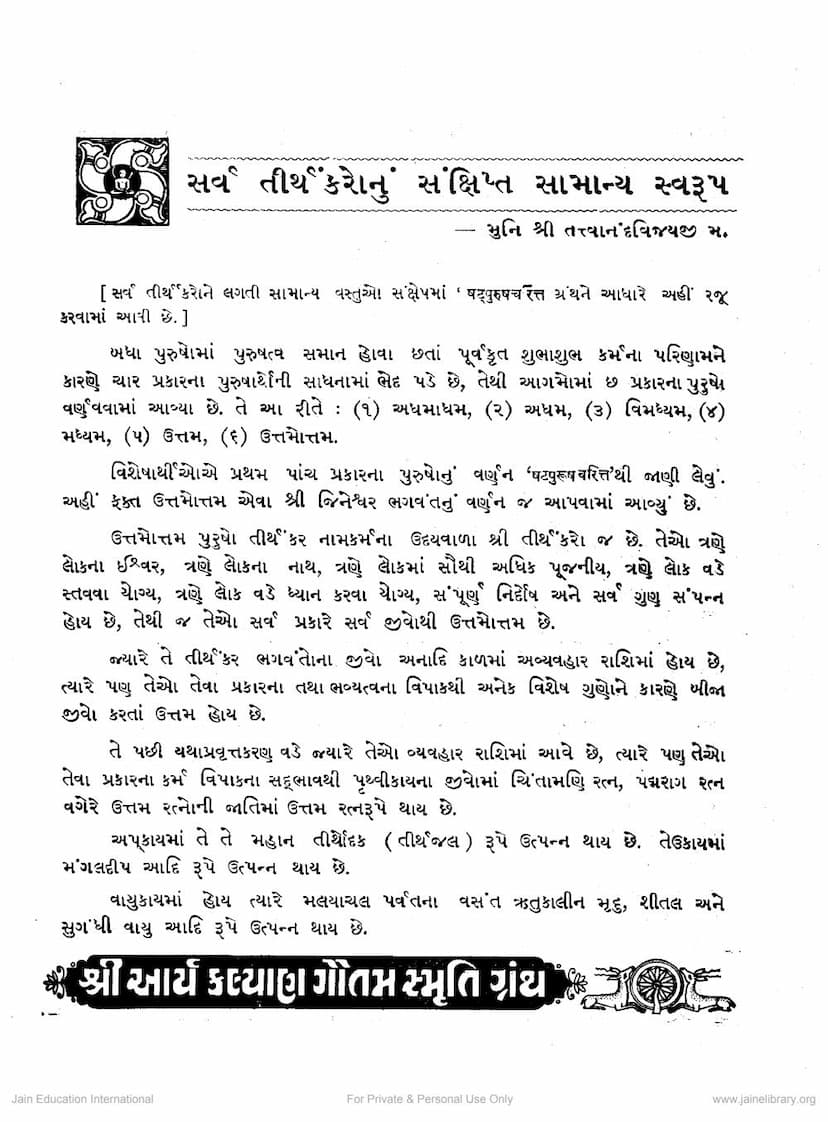 સર્વ તીર્થંકરોનું સંક્ષિપ્ત સામાન્ય સ્વરૂપ
— મુનિ શ્રી તત્ત્વાનંદવિજયજી મ.
[ સર્વ તીર્થંકરોને લગતી સામાન્ય વસ્તુઓ સંક્ષેપમાં ‘ષટ્પુરુષચરિત્ત ગ્રંથને આધારે અહીં રજૂ
કરવામાં આવી છે. ]
બધા પુરુષોમાં પુરુષત્વ સમાન હોવા છતાં પૂર્વકૃત શુભાશુભ કર્મના પરિણામને
કારણે ચાર પ્રકારના પુરુષાર્થોની સાધનામાં ભેદ પડે છે, તેથી આગમોમાં છ પ્રકારના પુરુષો
વર્ણવવામાં આવ્યા છે. તે આ રીતે : (૧) અધમાધમ, (૨) અધમ, (૩) વિમધ્યમ, (૪)
મધ્યમ, (૫) ઉત્તમ, (૬) ઉત્તમોત્તમ.
વિશેષાર્થીઓએ પ્રથમ પાંચ પ્રકારના પુરુષોનું વર્ણન ‘ષટપુરૂષચરિત્ત’થી જાણી લેવું.
અહીં ફક્ત ઉત્તમોત્તમ એવા શ્રી જિનેશ્વર ભગવંતનું વર્ણન જ આપવામાં આવ્યું છે.
ઉત્તમોત્તમ પુરુષો તીર્થંકર નામકર્મના ઉદયવાળા શ્રી તીર્થંકરો જ છે. તેઓ ત્રણે
લોકના ઈશ્વર, ત્રણે લોકના નાથ, ત્રણે લોકમાં સૌથી અધિક પૂજનીય, ત્રણે લોક વડે
સ્તવવા યોગ્ય, ત્રણે લોક વડે ધ્યાન કરવા યોગ્ય, સંપૂર્ણ નિર્દોષ અને સર્વ ગુણ સંપન્ન
હોય છે, તેથી જ તેઓ સર્વ પ્રકારે સર્વ જીવોથી ઉત્તમોત્તમ છે.
જ્યારે તે તીર્થંકર ભગવંતોના જીવો અનાદિ કાળમાં અવ્યવહાર રાશિમાં હોય છે,
ત્યારે પણ તેઓ તેવા પ્રકારના તથાભવ્યત્વના વિપાકથી અનેક વિશેષ ગુણોને કારણે બીજા
જીવો કરતાં ઉત્તમ હોય છે.
તે પછી યથાપ્રવૃત્તકરણ વડે જ્યારે તેઓ વ્યવહાર રાશિમાં આવે છે, ત્યારે પણ તેઓ
તેવા પ્રકારના કર્મ વિપાકના સદ્ભાવથી પૃથ્વીકાયના જીવોમાં ચિંતામણિ રત્ન, પદ્મરાગ રત્ન
વગેરે ઉત્તમ રત્નોની જાતિમાં ઉત્તમ રત્નરૂપે થાય છે.
અપ્કાયમાં તે તે મહાન તીર્થોદક (તીર્થજલ) રૂપે ઉત્પન્ન થાય છે. તેઉકાયમાં
મંગલદીપ આદિ રૂપે ઉત્પન્ન થાય છે.
વાયુકાયમાં હોય ત્યારે મલયાચલ પર્વતના વસંત ઋતુકાલીન મૃદુ, શીતલ અને
સુગંધી વાયુ આદિ રૂપે ઉત્પન્ન થાય છે.
શ્રી આર્ય કલ્યાણ ગૌતમ સ્મૃતિ ગ્રંથ
Jain Education International
For Private & Personal Use Only
www.jainelibrary.org